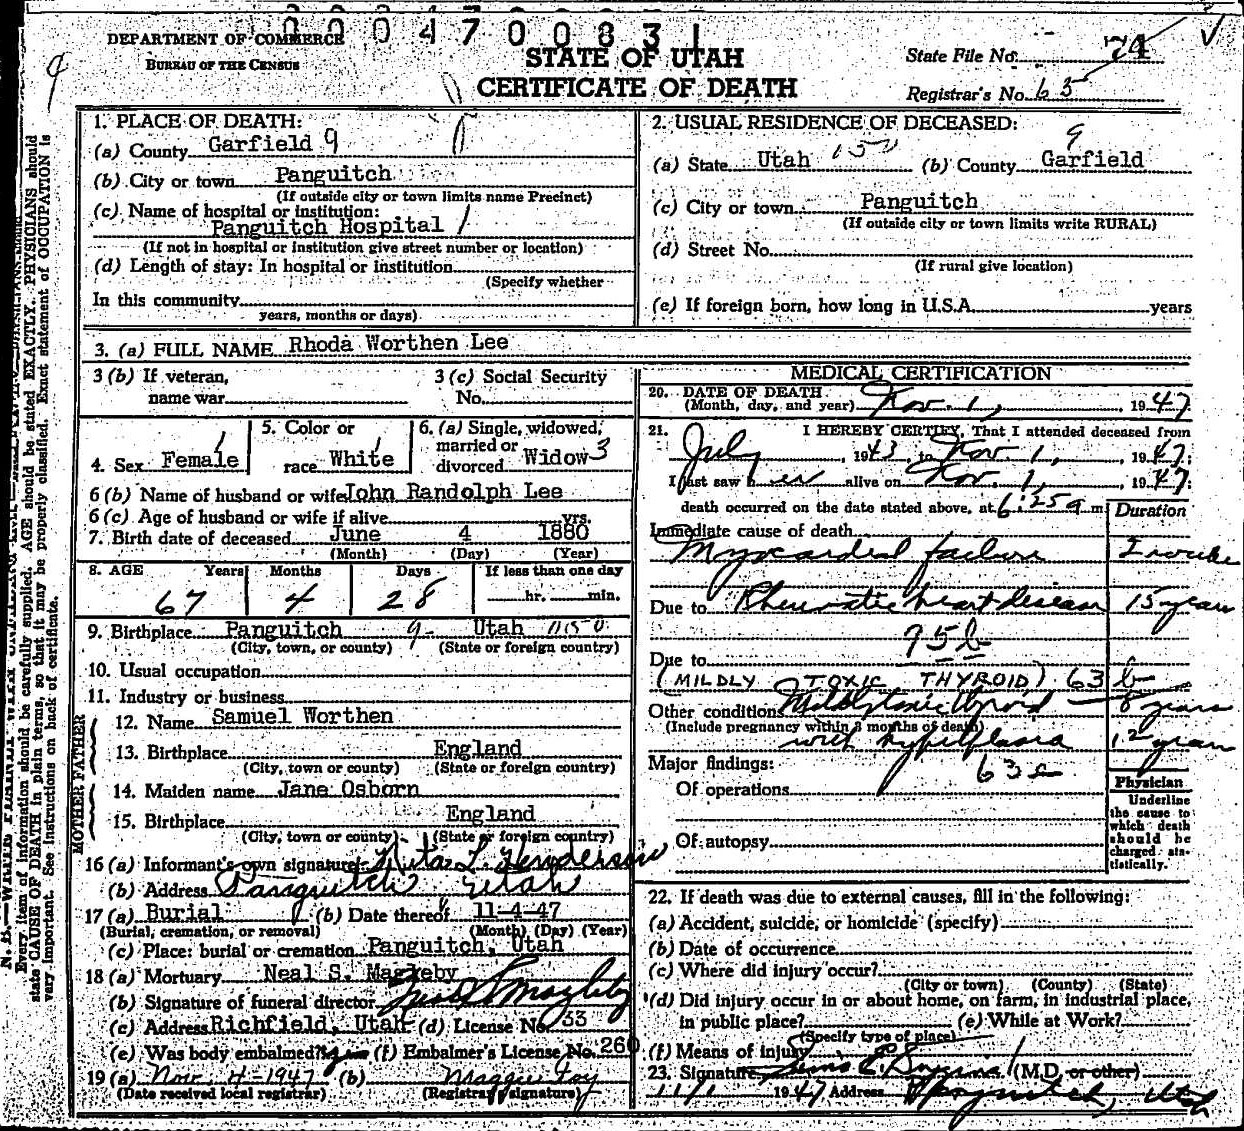 0004700831
DEPARTMENT OF COMMERCE
BUREAU OF THE CENSUS
STATE OF UTAH
CERTIFICATE OF DEATH
State File No. 74
Registrar's No. 63
N. B.—WRITE PLAINLY WITH UNFADING
Every item of information should be carefully supplied. AGE should be stated EXACTLY. PHYSICIANS should
state CAUSE OF DEATH in plain terms, so that it may be properly classified. Exact statement of OCCUPATION is
very important. See instructions on back of certificate.
1. PLACE OF DEATH:
(a) County Garfield 9
(b) City or town Panguitch
(If outside city or town limits name Precinct)
(c) Name of hospital or institution:
Panguitch Hospital 1
(If not in hospital or institution give street number or location)
(d) Length of stay: In hospital or institution
(Specify whether
In this community
years, months or days)
2. USUAL RESIDENCE OF DECEASED:
9
(a) State Utah (b) County Garfield
(c) City or town Panguitch
(If outside city or town limits write RURAL)
(d) Street No.
(If rural give location)
(e) If foreign born, how long in U.S.A. years
3. (a) FULL NAME Rhoda Worthen Lee
3 (b) If veteran,
name war
3 (c) Social Security
No.
4. Sex Female 1
5. Color or
race White 1
6. (a) Single, widowed,
married or
divorced Widow 3
6 (b) Name of husband or wife John Randolph Lee
6 (c) Age of husband or wife if alive yrs.
7. Birth date of deceased June 4 1880
(Month) (Day) (Year)
8. AGE Years Months Days If less than one day
67 4 28 hr. min.
9. Birthplace Panguitch 9 Utah
(City, town, or county) (State or foreign country)
10. Usual occupation
11. Industry or business
FATHER
12. Name Samuel Worthen
13. Birthplace England
(City, town or county) (State or foreign country)
MOTHER
14. Maiden name Jane Osborn
15. Birthplace England
(City, town or county) (State or foreign country)
16 (a) Informant's own signature Nita L. Henderson
(b) Address Panguitch Utah
17 (a) Burial (b) Date thereof 11-4-47
(Burial, cremation, or removal) (Month) (Day) (Year)
(c) Place: burial or cremation Panguitch, Utah
18 (a) Mortuary Neal S. Magleby
(b) Signature of funeral director Neal S Magleby
(c) Address Richfield, Utah (d) License No. 33
(e) Was body embalmed? yes (f) Embalmer's License No. 260
19 (a) Nov. 4-1947 (b) Maggie Foy
(Date received local registrar) (Registrar's signature)
MEDICAL CERTIFICATION
20. DATE OF DEATH
(Month, day, and year) Nov. 1, 1947
21. I HEREBY CERTIFY, That I attended deceased from
July, 1943, to Nov 1, 1947;
I last saw her alive on Nov. 1, 1947;
death occurred on the date stated above, at 6:25 a m.
Duration
Immediate cause of death
Myocardial failure 2 weeks
Due to Rheumatic heart disease 15 years
95b
Due to
(MILDLY TOXIC THYROID) 63 b
Other conditions Mildly toxic thyroid 8 years
(Include pregnancy within 3 months of death)
with hyperplasia 12 years
Major findings:
Of operations
Of autopsy
Physician
Underline
the cause to
which death
should be
charged sta-
tistically.
22. If death was due to external causes, fill in the following:
(a) Accident, suicide, or homicide (specify)
(b) Date of occurrence
(c) Where did injury occur?
(City or town) (County) (State)
(d) Did injury occur in or about home, on farm, in industrial place,
in public place? (e) While at Work?
(Specify type of place)
(f) Means of injury
23. Signature (M.D. or other)
11/1 1947 Address Panguitch, Utah